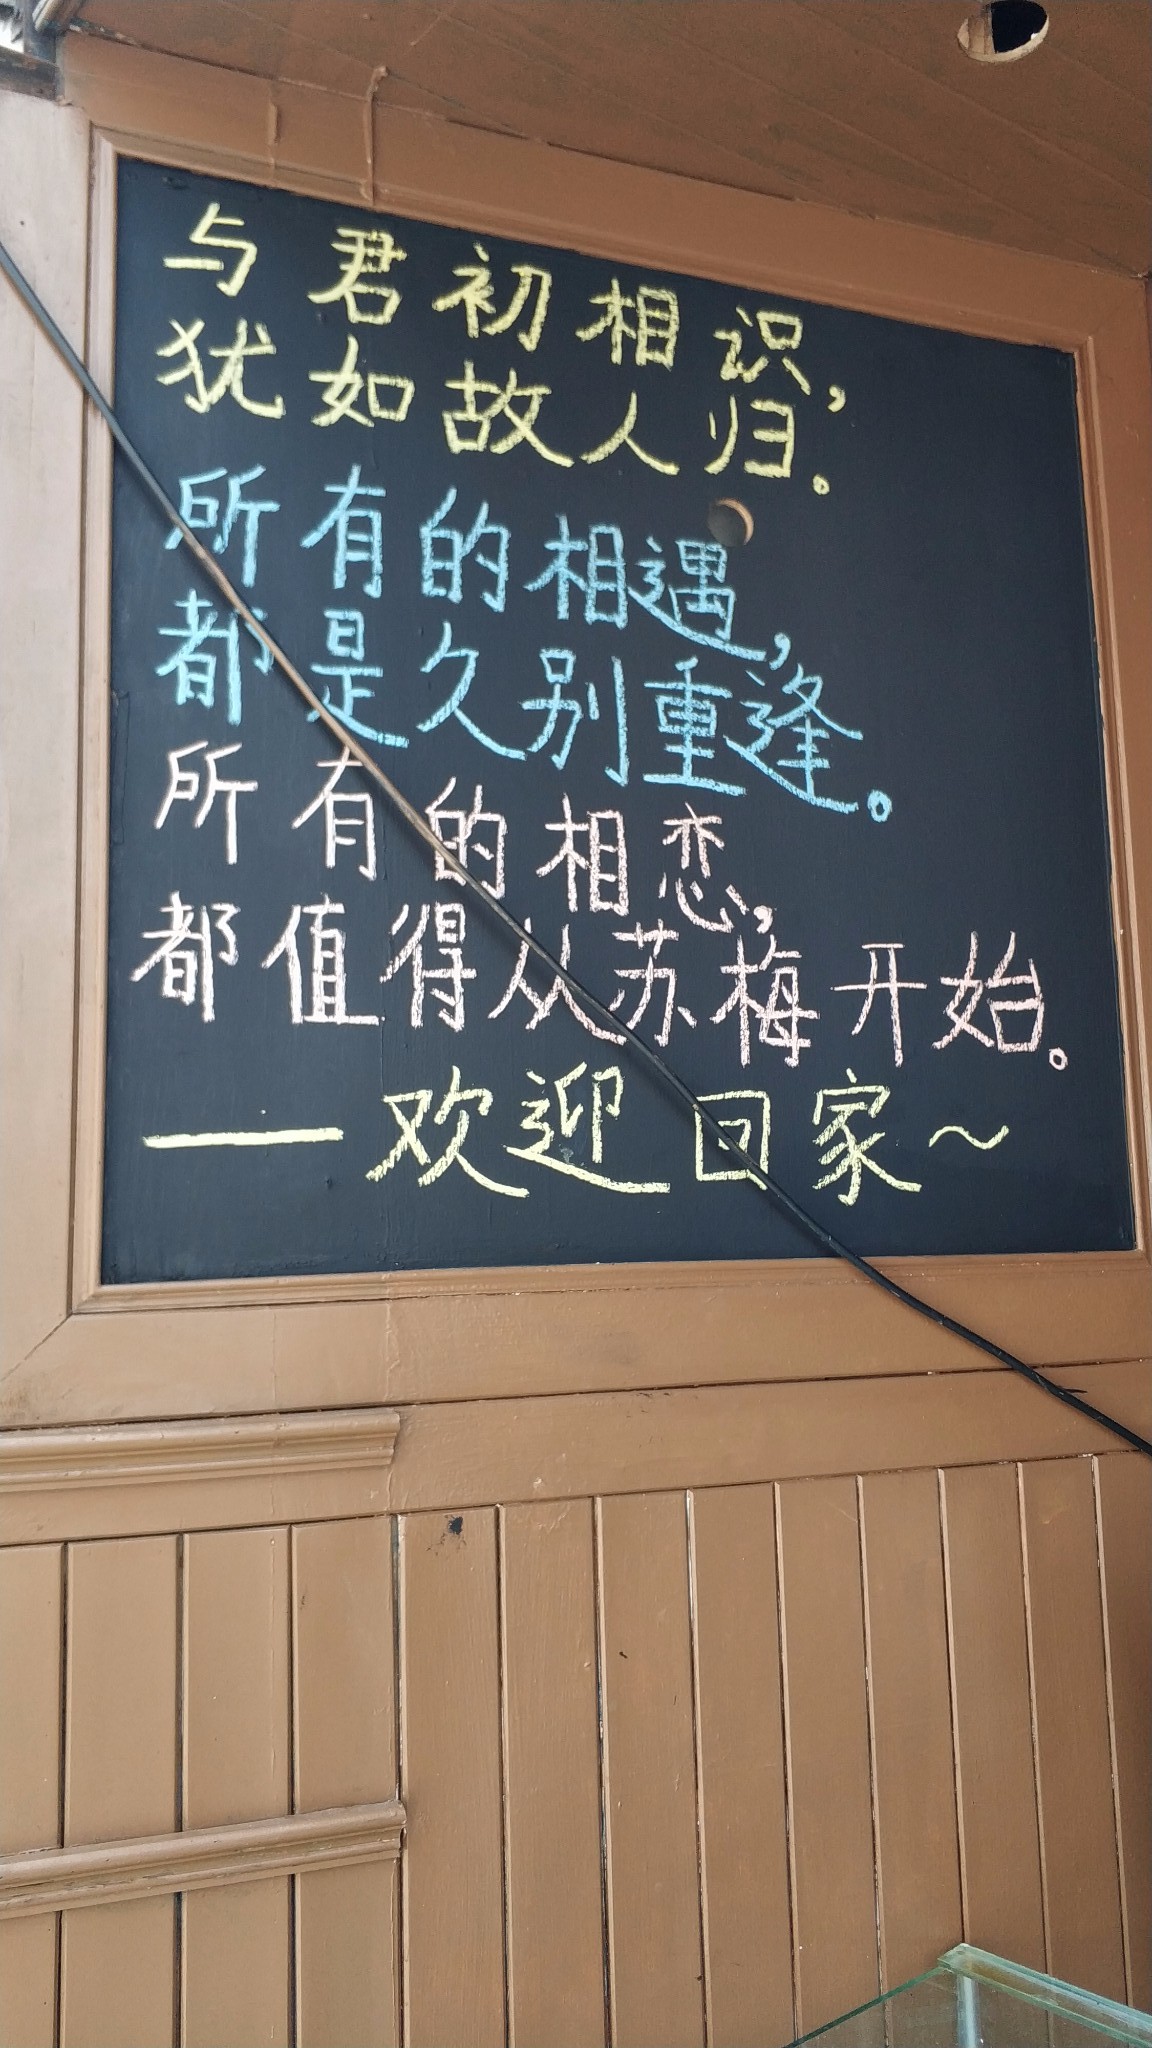 与君初相识,
犹如故人归。
所有的相遇,
都是久别重逢。
所有的相恋,
都值得从苏梅开始。
——欢迎回家~